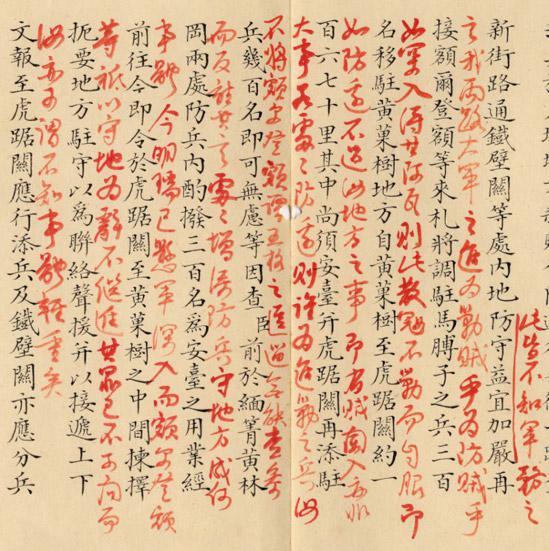 此皆不知軍務之
新街路通鐵壁關等處內地防守益宜加嚴再
之我兩路大軍之進為勦賊乎為防賊乎
接額爾登額等來札將調駐馬膊子之兵三百
如軍入得其阿瓦則此數賊不勦而自服即
名移駐黃菓樹地方自黃菓樹至虎踞關約一
如防邊不過汝地方之事即有賊闖入亦非
百六七十里其中尚須安臺并虎踞關再添駐
大事若處〻防邊則許為進勦之兵汝
不將額爾登額譚五格之逗遛參奏
兵幾百名即可無慮等因查臣前於緬箐黃林
而反其言處〻增添防兵守地方成何
岡兩處防兵內酌撥三百名爲安臺之用業經
事體今明瑞已懸軍深入而額爾登額
前往今即令於虎踞關至黃菓樹之中間揀擇
等祇以守地為辭不繼進其罪已不可問而
扼要地方駐守以爲聯絡聲援并以接遞上下
汝亦可謂不知事體輕重矣
文報至虎踞關應行添兵及鐵壁關亦應分兵